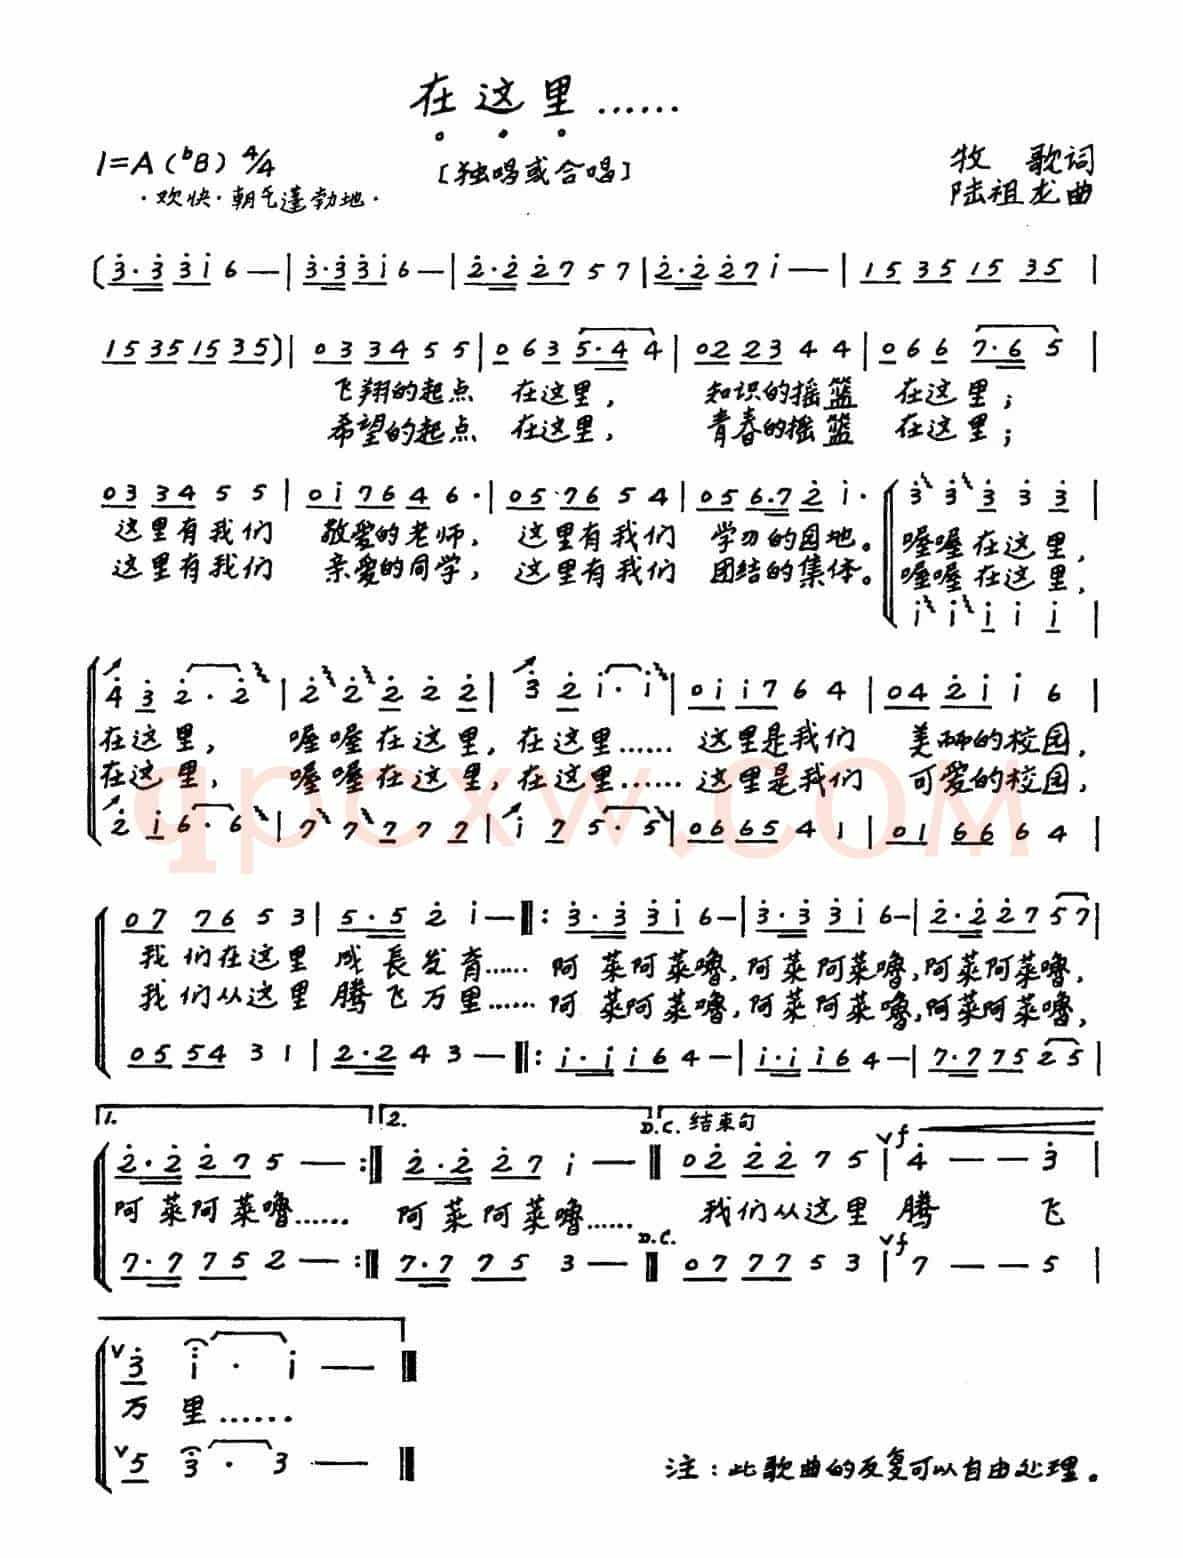 在这里……
1=A（bB）4/4
[独唱或合唱]
牧 歌词
·欢快·朝气蓬勃地·
陆祖龙曲
(3·3 31 6 —|3·3 31 6 —|2·2 27 5 7|2·2 27 1 —|15 35 15 35|
15 35 15 35)|03 34 5 5|06 3 5·4 4|02 23 4 4|06 6 7·6 5|
飞翔的起点 在这里， 知识的摇篮 在这里；
希望的起点 在这里， 青春的摇篮 在这里；
03 34 5 5|01 76 4 6·|05·76 5 4|05 6·7 2 1·|3 3 3 3 3|
这里有我们 敬爱的老师， 这里有我们 学习的园地。 喔喔在这里，
这里有我们 亲爱的同学， 这里有我们 团结的集体。 喔喔在这里，
1 1 1 1 1|
4 3 2·2|2 2 2 2 2|3 2 1·1|01 17 6 4|04 21 1 6|
在这里， 喔喔在这里，在这里…… 这里是我们 美丽的校园，
在这里， 喔喔在这里，在这里…… 这里是我们 可爱的校园，
2 1 6·6|7 7 7 7 7|1 7 5·5|06 65 4 1|01 66 6 4|
qpcxw.com
07 76 5 3|5·5 2 1 —‖:3·3 31 6 —|3·3 31 6 —|2·2 27 5 7|
我们在这里 成長发育……阿莱阿莱噜，阿莱阿莱噜，阿莱阿莱噜，
我们从这里 腾飞万里……阿莱阿莱噜，阿莱阿莱噜，阿莱阿莱噜，
05 54 3 1|2·2 4 3 —‖:1·1 16 4 —|1·1 16 4 —|7·7 75 2 5|
1. 2. D.C. 结束句
2·2 27 5 — :‖2·2 27 1 —‖02 22 7 5|∨f 4 — — 3|
阿莱阿莱噜…… 阿莱阿莱噜…… 我们从这里 腾 飞
D.C.
7·7 75 2 — :‖7·7 75 3 —‖07 77 5 3|∨f 7 — — 5|
∨3 1 · 1 —‖
万 里……
∨5 3 · 3 —‖
注：此歌曲的反复可以自由处理。